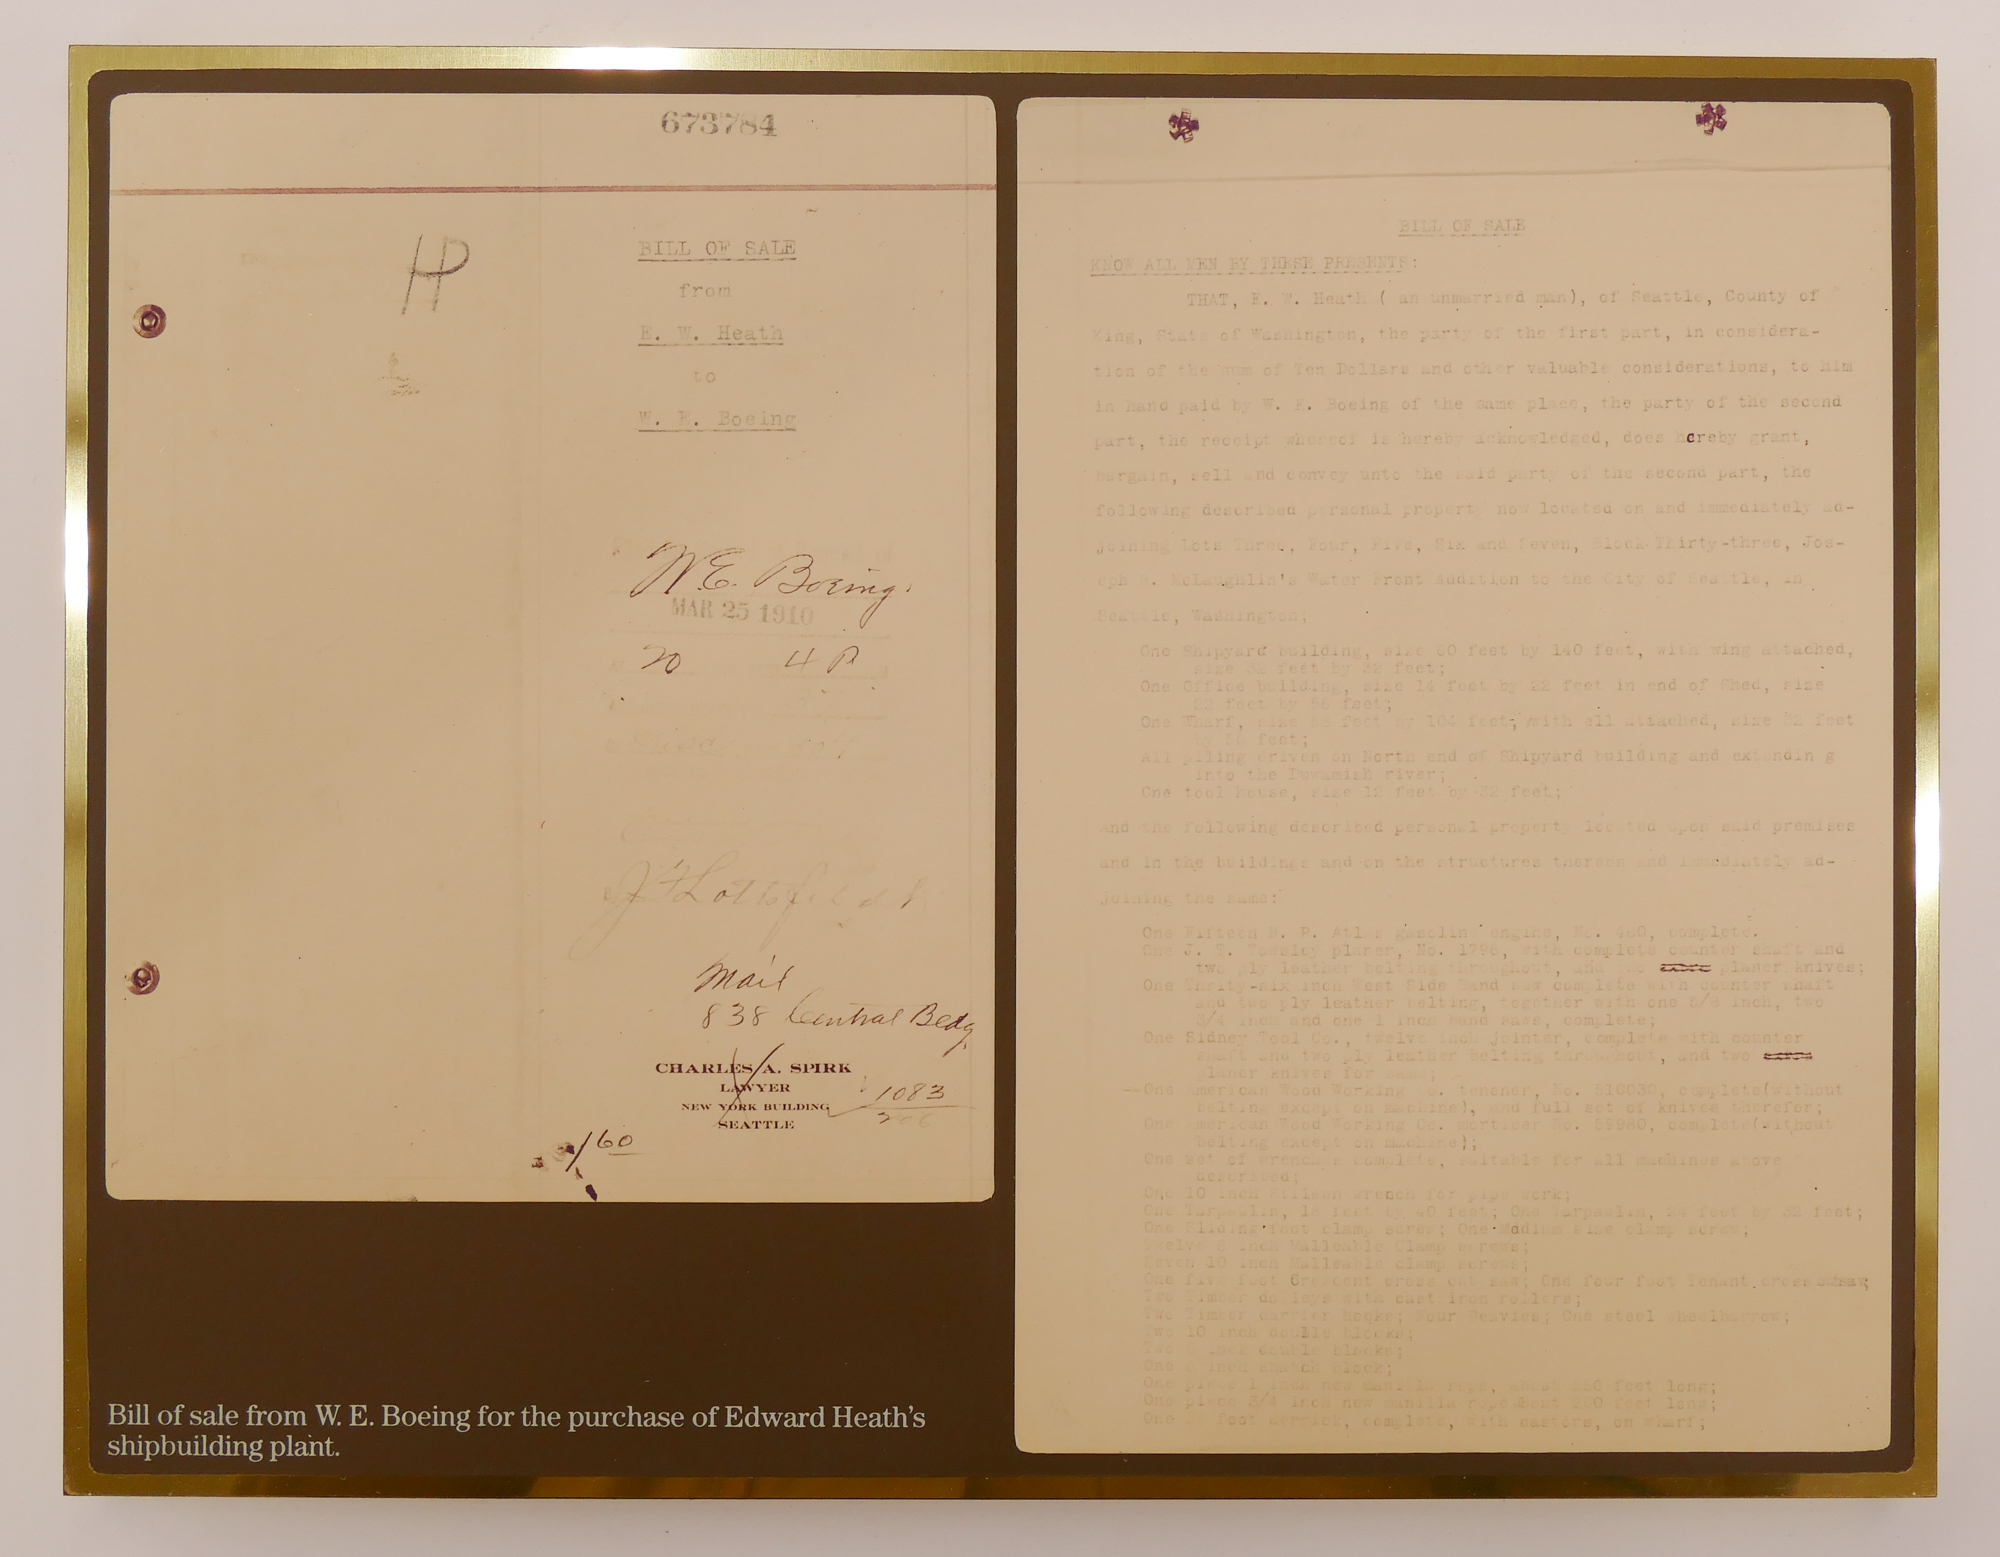 673784
HP
BILL OF SALE
from
E. W. Heath
to
W. E. Boeing
W.E. Boeing.
MAR 25 1910
20 4 P
Mail
838 Central Bldg
CHARLES A. SPIRK
LAWYER
NEW YORK BUILDING
SEATTLE
1083
160
Bill of sale from W. E. Boeing for the purchase of Edward Heath's
shipbuilding plant.
BILL OF SALE
KNOW ALL MEN BY THESE PRESENTS:
THAT, E. W. Heath ( an unmarried man), of Seattle, County of
King, State of Washington, the party of the first part, in considera-
tion of the sum of Ten Dollars and other valuable considerations, to him
in hand paid by W. E. Boeing of the same place, the party of the second
part, the receipt whereof is hereby acknowledged, does hereby grant,
bargain, sell and convey unto the said party of the second part, the
following described personal property now located on and immediately ad-
joining Lots Three, Four, Five, Six and Seven, Block Thirty-three, Jos-
eph McLaughlin's Water Front Addition to the City of Seattle, in
Seattle, Washington;
One Shipyard building, size 60 feet by 140 feet, with wing attached,
size 32 feet by feet;
One Office building, size 14 feet by 22 feet in end of Shed, size
22 feet by feet;
One Wharf, size feet by 104 feet, with ell attached, size 32 feet
by feet;
All piling driven on North end of Shipyard building and extendin g
into the Duwamish river;
One tool house, size 12 feet by 32 feet;
and the following described personal property located upon said premises
and in the buildings and on the structures thereon and immediately ad-
joining the same:
One Fifteen H. P. Atlas gasoline engine, No. complete.
One J. T. Towsley planer, No. 1796, with complete counter shaft and
two ply leather belting throughout, and two planer knives;
One Thrity-six inch West Side Band saw complete with counter shaft
and two ply leather belting, together with one 5/8 inch, two
3/4 inch and one 1 inch band saws, complete;
One Sidney Tool Co., twelve inch jointer, complete with counter
shaft and two ply leather belting throughout, and two
planer knives for same;
One American Wood Working Co. tenoner, No. complete(without
belting except on machine), and full set of knives therefor;
One American Wood Working Co. mortiser No. 59980, complete(without
belting except on machine);
One set of wrenches complete, suitable for all machines above
described;
One 10 inch Stilson wrench for pipe work;
One Tarpaulin, 18 feet by 40 feet; One Tarpaulin, 24 feet by 32 feet;
One Sliding foot clamp screw; One Madium size clamp screw;
Twelve 8 inch Malleable Clamp screws;
Seven 10 inch Malleable clamp screws;
One five foot Crescent cross cut saw; One four foot Tenant cross cut saw;
Two Timber dolleys with cast iron rollers;
Two Timber carrier hooks; Four Peavies; One steel wheelbarrow;
Two 10 inch double blocks;
Two inch double blocks;
One inch snatch block;
One piece 1 inch new manilla rope, about feet long;
One piece 3/4 inch new manilla rope about feet long;
One foot derrick, complete, with casters, on wharf;